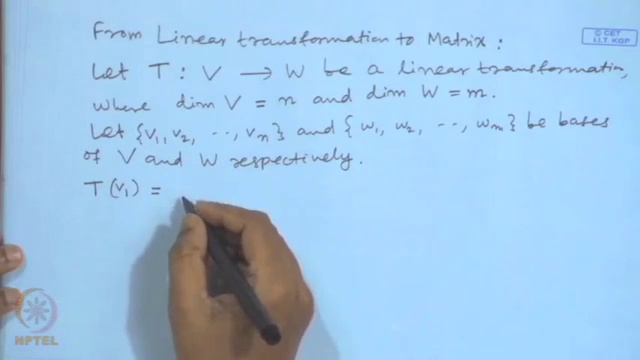 © CET
I.I.T. KGP
From Linear transformation to Matrix :
Let T : V → W be a linear transformation,
where dim V = n and dim W = m.
Let {v₁, v₂, ··, vₙ} and {w₁, w₂, ··, wₘ} be bases
of V and W respectively.
T(v₁) =
NPTEL